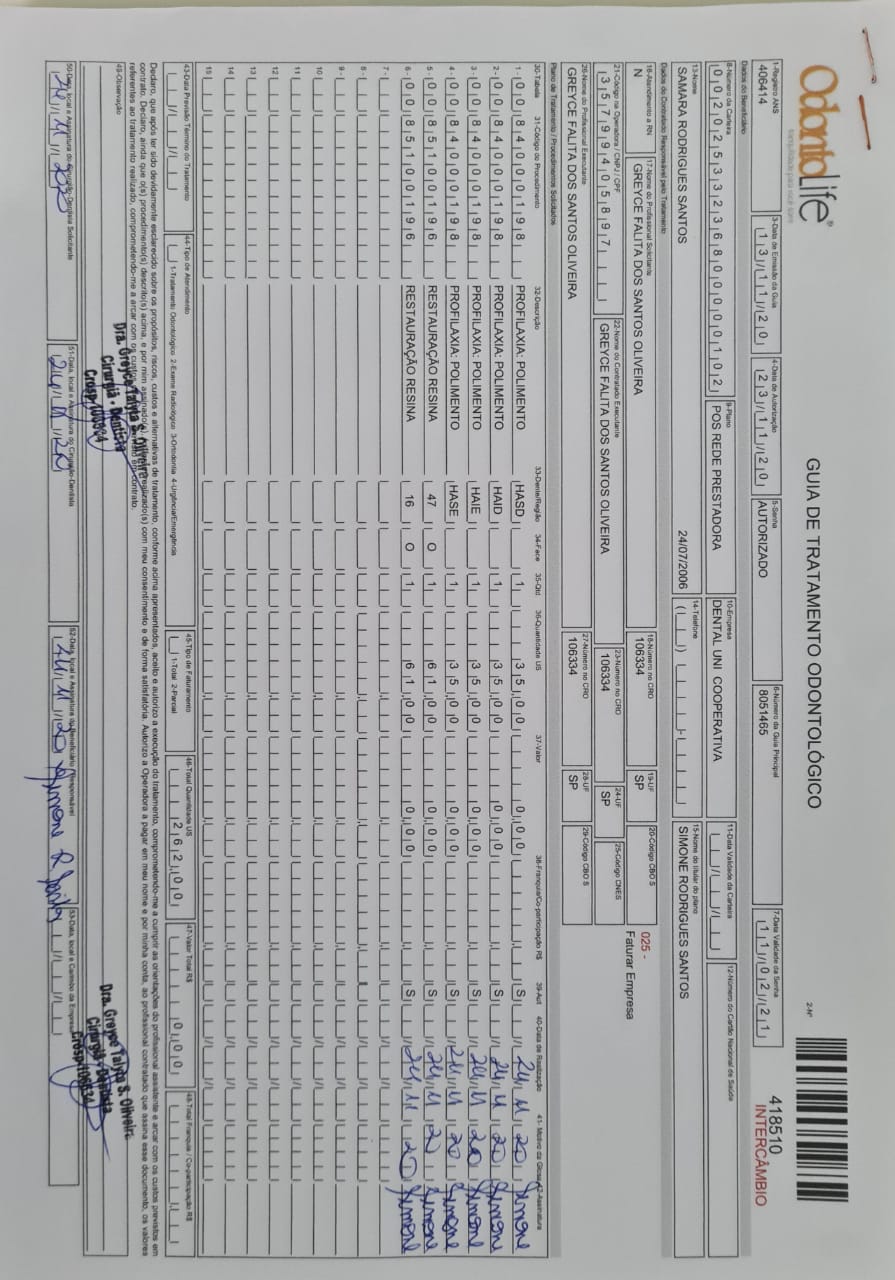 OdontoLife®
tranquilidade para você sorrir
GUIA DE TRATAMENTO ODONTOLÓGICO
2-Nº
418510
INTERCÂMBIO
1-Registro ANS
406414
3-Data de Emissão da Guia
13/11/20
4-Data de Autorização
23/11/20
5-Senha
AUTORIZADO
6-Número da Guia Principal
8051465
7-Data Validade da Senha
11/02/21
Dados do Beneficiário
8-Número da Carteira
00202533236800000102
9-Plano
POS REDE PRESTADORA
10-Empresa
DENTAL UNI COOPERATIVA
11-Data Validade da Carteira
12-Número do Cartão Nacional de Saúde
13-Nome
SAMARA RODRIGUES SANTOS 24/07/2006
14-Telefone
15-Nome do titular do plano
SIMONE RODRIGUES SANTOS
Dados do Contratado Responsável pelo Tratamento
16-Atendimento a RN
N
17-Nome do Profissional Solicitante
GREYCE FALITA DOS SANTOS OLIVEIRA
18-Número no CRO
106334
19-UF
SP
20-Código CBO S
025 -
Faturar Empresa
21-Código na Operadora / CNPJ / CPF
35799405897
22-Nome do Contratado Executante
GREYCE FALITA DOS SANTOS OLIVEIRA
23-Número no CRO
106334
24-UF
SP
25-Código CNES
26-Nome do Profissional Executante
GREYCE FALITA DOS SANTOS OLIVEIRA
27-Número no CRO
106334
28-UF
SP
29-Código CBO S
Plano de Tratamento / Procedimentos Solicitados
30-Tabela 31-Código do Procedimento 32-Descrição 33-Dente/Região 34-Face 35-Qtd 36-Quantidade US 37-Valor 38-Franquia/Co-participação R$ 39-Aut 40-Data de Realização 41-Motivo da Glosa 42-Assinatura
1- 00 84000198 PROFILAXIA: POLIMENTO HASD 1 35,00 0,00 S 24 11 20 Simone
2- 00 84000198 PROFILAXIA: POLIMENTO HAID 1 35,00 0,00 S 24 11 20 Simone
3- 00 84000198 PROFILAXIA: POLIMENTO HAIE 1 35,00 0,00 S 24 11 20 Simone
4- 00 84000198 PROFILAXIA: POLIMENTO HASE 1 35,00 0,00 S 24 11 20 Simone
5- 00 85100196 RESTAURAÇÃO RESINA 47 O 1 61,00 0,00 S 24 11 20 Simone
6- 00 85100196 RESTAURAÇÃO RESINA 16 O 1 61,00 0,00 S 24 11 20 Simone
7-
8-
9-
10
11
12
13
14
15
43-Data Previsão Término do Tratamento
44-Tipo de Atendimento
1-Tratamento Odontológico 2-Exame Radiológico 3-Ortodontia 4-Urgência/Emergência
45-Tipo de Faturamento
1-Total 2-Parcial
46-Total Quantidade US
262,00
47-Valor Total R$
0,00
48-Total Franquia / Co-participação R$
Declaro, que após ter sido devidamente esclarecido sobre os propósitos, riscos, custos e alternativas de tratamento, conforme acima apresentados, aceito e autorizo a execução do tratamento, comprometendo-me a cumprir as orientações do profissional assistente e arcar com os custos previstos em
contrato. Declaro, ainda que o(s) procedimento(s) descrito(s) acima, e por mim assinado(s), realizado(s) com meu consentimento e de forma satisfatória. Autorizo a Operadora a pagar em meu nome e por minha conta, ao profissional contratado que assina esse documento, os valores
referentes ao tratamento realizado, comprometendo-me a arcar com os custos em contrato.
49-Observação
Dra. Greyce Talyta S. Oliveira
Cirurgiã - Dentista
Crosp-106334
Dra. Greyce Talyta S. Oliveira
Cirurgiã - Dentista
Crosp-106334
50-Data, local e Assinatura do Cirurgião-Dentista Solicitante
24/11/20
51-Data, local e Assinatura do Cirurgião-Dentista
24/11/20
52-Data, local e Assinatura do Beneficiário / Responsável
24/11/20 Simone R. Santos
53-Data, local e Carimbo da Empresa